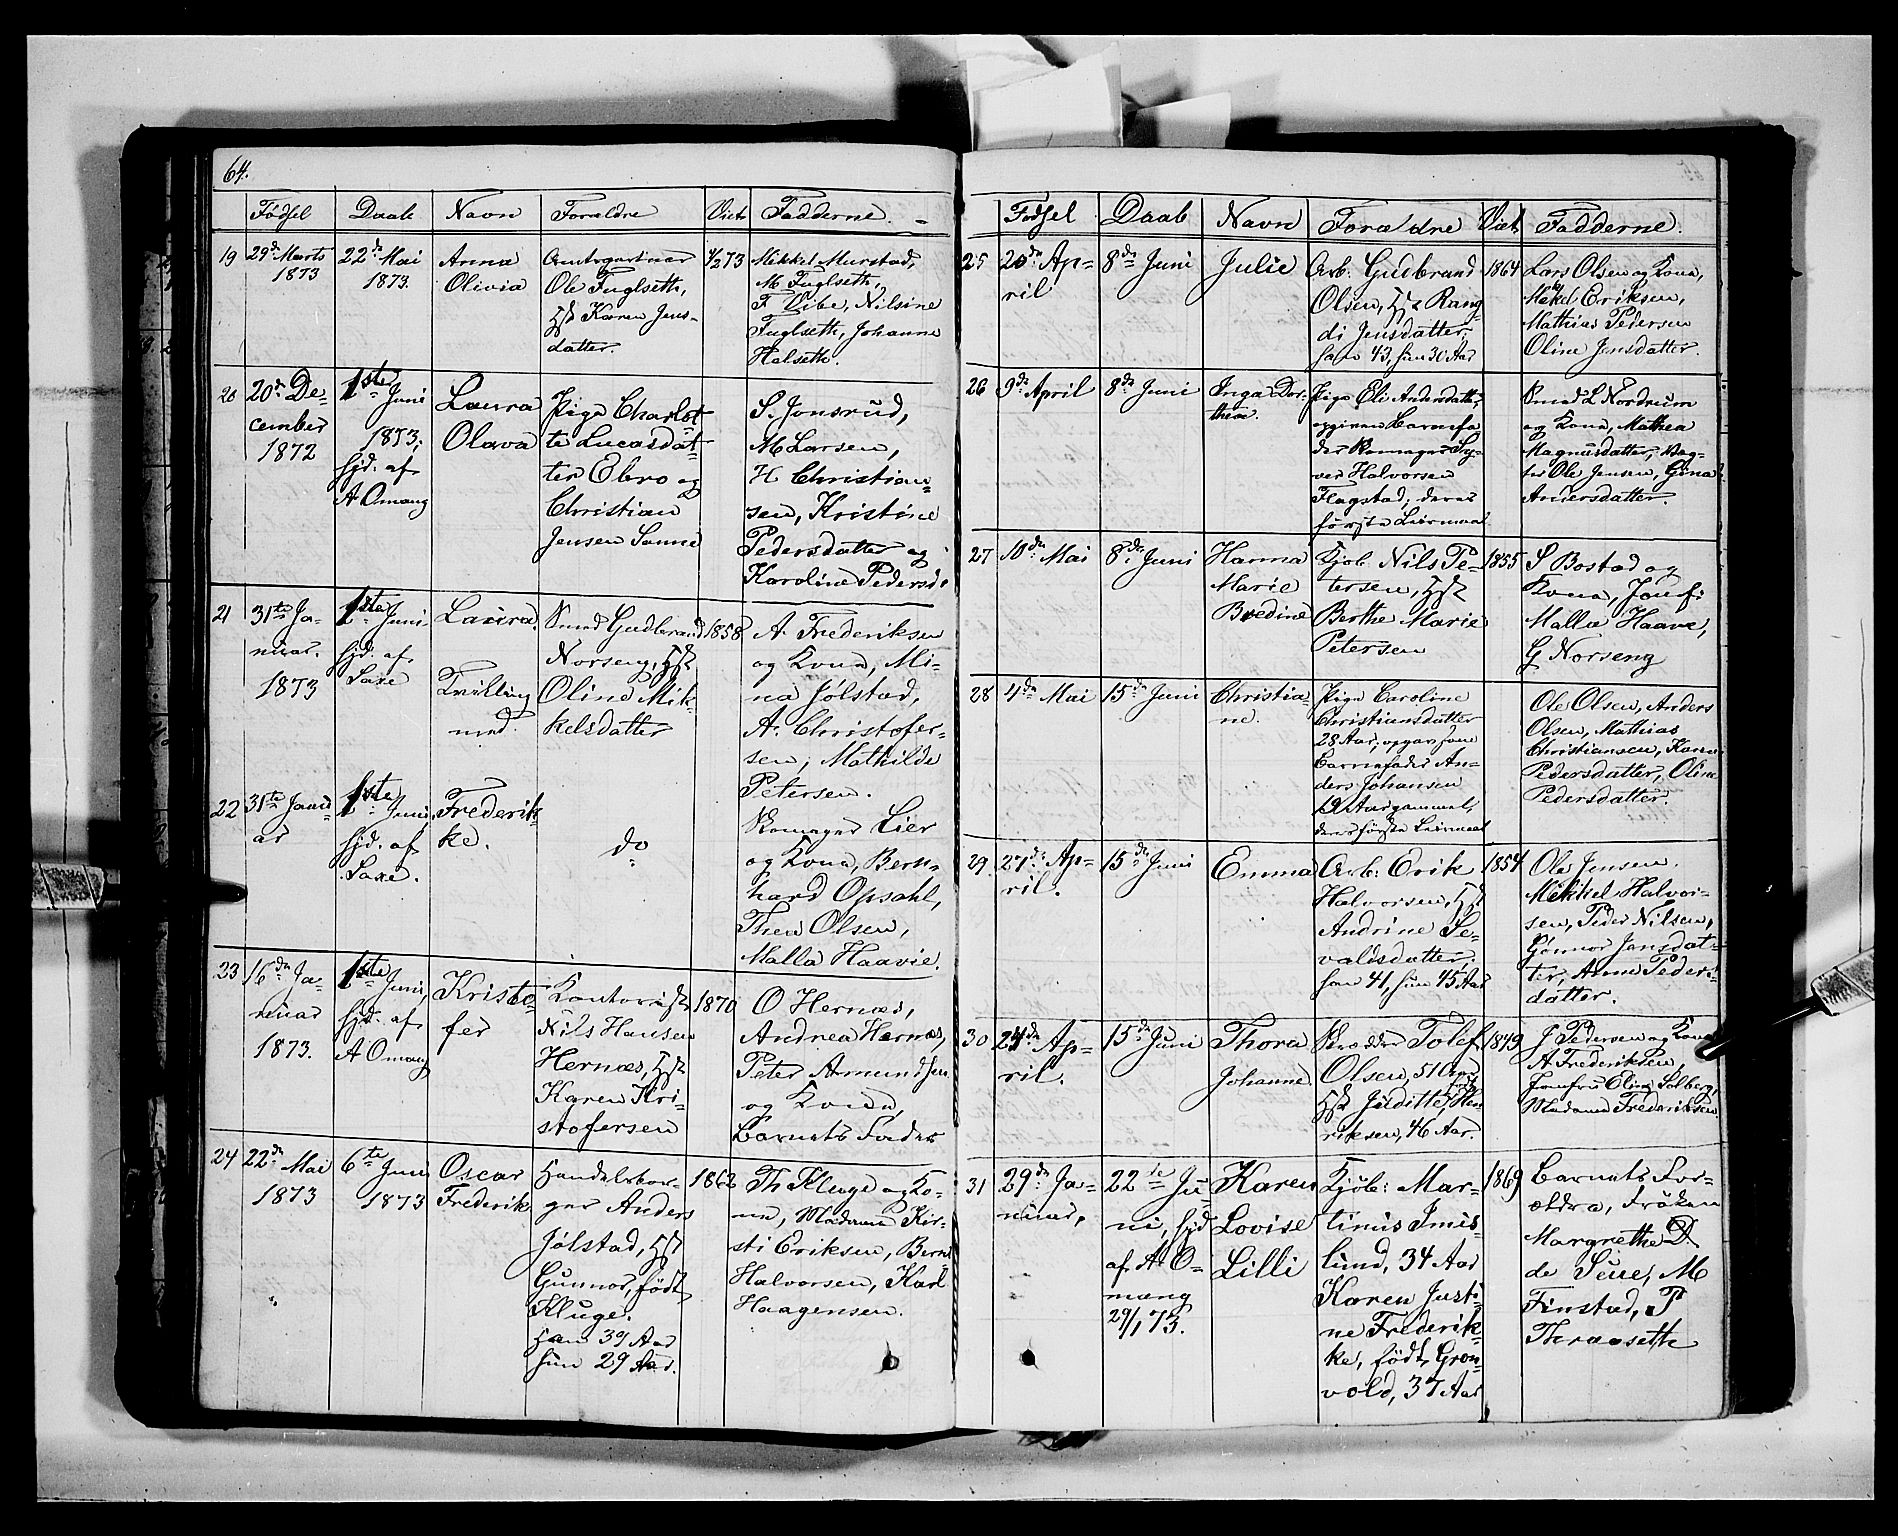 64.
Fødsel Daab Navn Forældre Viet Fadderne.
19 29de Marts 22de Mai Anna
1873 1873. Olivia
Ole Fuglseth,
Karen Jens-
datter.
4/3 73
Mikkel Murstad,
M Fuglseth,
F Vibe, Nilsine
Fuglseth, Johanne
Halseth.
20 20de De-
cember
1872
1ste Juni
1873;
hjd. af
A Omang
Laura
Olava
Pige Charlot-
te Lucasdat-
ter Ebro og
Christian
Jensen Sanne
S. Jonsrud,
M Larsen,
H Christian-
sen, Kristine
Pedersdatter og
Karoline Pedersd.
21 31te Ja-
nuar.
1873
1ste Juni
hjd. af
Saxe
Laura.
Tvilling
med
Smed Gudbrand
Norseng,
Oline Mik-
kelsdatter
1858
A. Frederiksen
og Kona, Mi-
na Jølstad,
A. Christofer-
sen, Mathilde
Petersen.
22 31te Janu-
ar
1ste Juni,
hjd. af
Saxe.
Frederik-
ke.
do
Skomager Lier
og Kona, Bern-
hard Opsahl,
Thea Olsen,
Malla Haavie.
23 16de Ja-
nuar
1873.
1ste Juni,
hjd. af
A Omang
Kristo-
fer
Kontorist
Nils Hansen
Hernæs,
Karen Kri-
stofersen
1870
O Hernæs,
Andrea Hernæs,
Peter Amundsen
og Kona,
Barnets Fader
24 22de Mai
1873
6te Juni
1873
Oscar
Frederik
Handelsbor-
ger Anders
Jølstad,
Gunnor, født
Kluge.
Han 39 Aar
hun 29 Aar.
1862
Th Kluge og Ko-
na, Madame Kir-
sti Eriksen, Bernt
Halvorsen, Karl
Haagensen.
Fødsel Daab Navn Forældre Viet Fadderne.
25 20de Ap-
ril
8de Juni
Julie
Arb: Gudbrand
Olsen, Rang-
di Jensdatter,
han 43, hun 30 Aar
1864
Lars Olsen og Kona,
Mikkel Eriksen,
Mathias Pedersen
Oline Jensdatter.
26 9de April
8de Juni
Inga Dor-
thea
Pige Eli Andersdatter,
opgiven Barnefa-
der Skomager Sy-
ver Halvorsen
Flagstad; deres
første Leiermaal
Smed L Nordrum
og Kona, Mathea
Magnusdatter,
Ole Jensen, Gina
Andersdatter.
27 10de Mai
8de Juni
Hanna
Marie
Bredine
Kjøb. Nils Pe-
tersen,
Berthe Marie
Petersen
1855
S Bostad og
Kona, Jomf:
Malla Haave,
G Norseng
28 4de Mai
15de Juni
Christia-
ne.
Pige Caroline
Christiansdatter
28 Aar,
Barnefader An-
ders Johansen
Aar gammel,
deres første Leiermaal
Ole Olsen, Anders
Olsen, Mathias
Christiansen, Karen
Pedersdatter, Oline
Pedersdatter.
29 27de Ap-
ril.
15de Juni
Emma
Arb: Erik
Halvorsen,
Andrine Se-
valdsdatter,
han 41, hun 45 Aar
1854
Ole Jensen.
Mikkel Halvor-
sen, Peder Nilsen,
Gønnor Jensdat-
ter, Anne Peders-
datter.
30 24de Ap-
ril.
15de Juni
Thora
Johanne.
Skrædder Tolef
Olsen, 51 Aar
Juditte, født Hen-
riksen, 46 Aar.
1849
J Pedersen og Kona
A Frederiksen,
Jomfru Elise Solberg,
Madame Frederiksen
31 29de Ja-
nuar,
22de Ju-
ni, hjd
af A O-
mang
29/1 73.
Karen
Lovise
Lilli
Kjøb: Mar-
tinus Imis-
lund, 34 Aar
Karen Justi-
ne Frederik-
ke, født Grøn-
vold, 37 Aar
1869
Barnets For-
ældre, Frøken
Margrethe D
de Seue, M
Finstad, P
Thraaseth